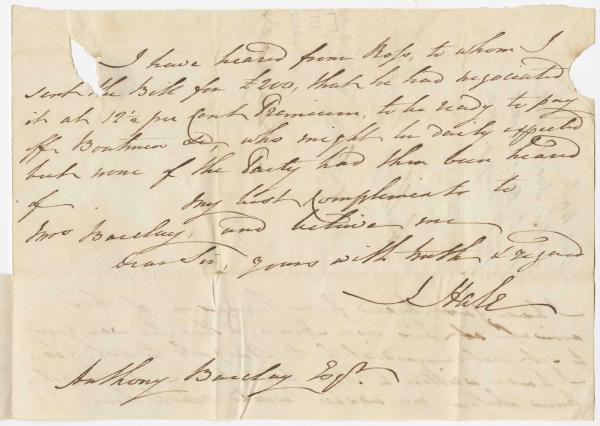 [5]
I have heard from Ross, to whom I
sent the Bill for £200, that he had negociated
it at 12½ per Cent Premium, to be ready to pay
off Boatmen &c, who might be daily expected
but none of the Party had then been heard
of my best Compliments to
Mrs Barclay, and believe me
Dear Sir, yours with truth & regard
J Hale
Anthony Barclay Esqr.